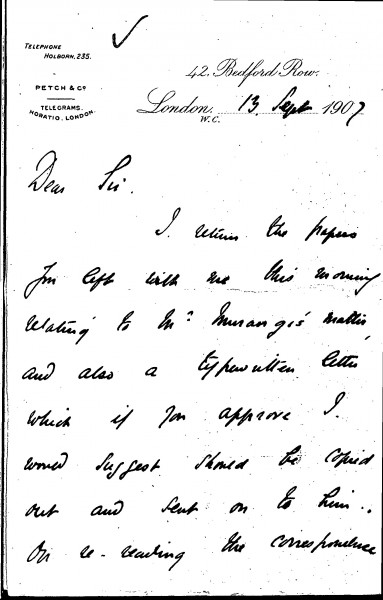 TELEPHONE
HOLBORN, 235.
PETCH & Co
TELEGRAMS.
HORATIO, LONDON.
42, Bedford Row.
London, 13 Sept 1907
W.C.
Dear Sir.
I return the papers
you left with me this morning
relating to Mr Murangi's matter
and also a typewritten letter
which if you approve I.
would suggest should be copied
out and sent on to him.
On re-reading the correspondence